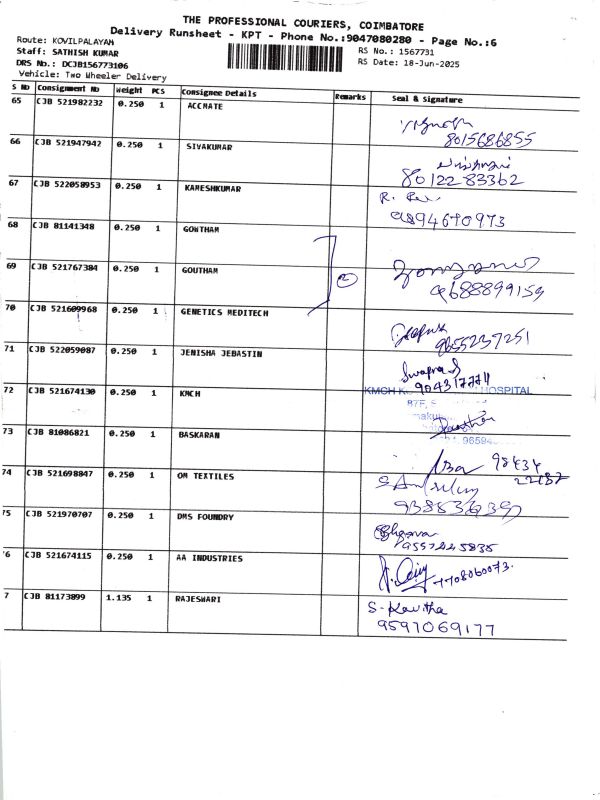 THE PROFESSIONAL COURIERS, COIMBATORE
Delivery Runsheet - KPT - Phone No.:9047080280 - Page No.:6
Route: KOVILPALAYAM
Staff: SATHISH KUMAR
DRS No.: DCJB156773106
Vehicle: Two Wheeler Delivery
RS No.: 1567731
RS Date: 18-Jun-2025
S No Consignment No Weight PCS Consignee Details Remarks Seal & Signature
65 CJB 521982232 0.250 1 ACCMATE
8015686855
66 CJB 521947942 0.250 1 SIVAKUMAR
8012283362
67 CJB 522058953 0.250 1 KAMESHKUMAR
9894670973
68 CJB 81141348 0.250 1 GOWTHAM
69 CJB 521767384 0.250 1 GOUTHAM 2
9688899159
70 CJB 521609968 0.250 1 GENETICS MEDITECH
9655237251
71 CJB 522059087 0.250 1 JENISHA JEBASTIN
Swapna S
72 CJB 521674130 0.250 1 KMCH KMCH HOSPITAL
73 CJB 81086821 0.250 1 BASKARAN
98434
22187
74 CJB 521698847 0.250 1 OM TEXTILES
75 CJB 521970707 0.250 1 DMS FOUNDRY
'6 CJB 521674115 0.250 1 AA INDUSTRIES
7708060073.
7 CJB 81173899 1.135 1 RAJESWARI S- Kavitha
9597069177